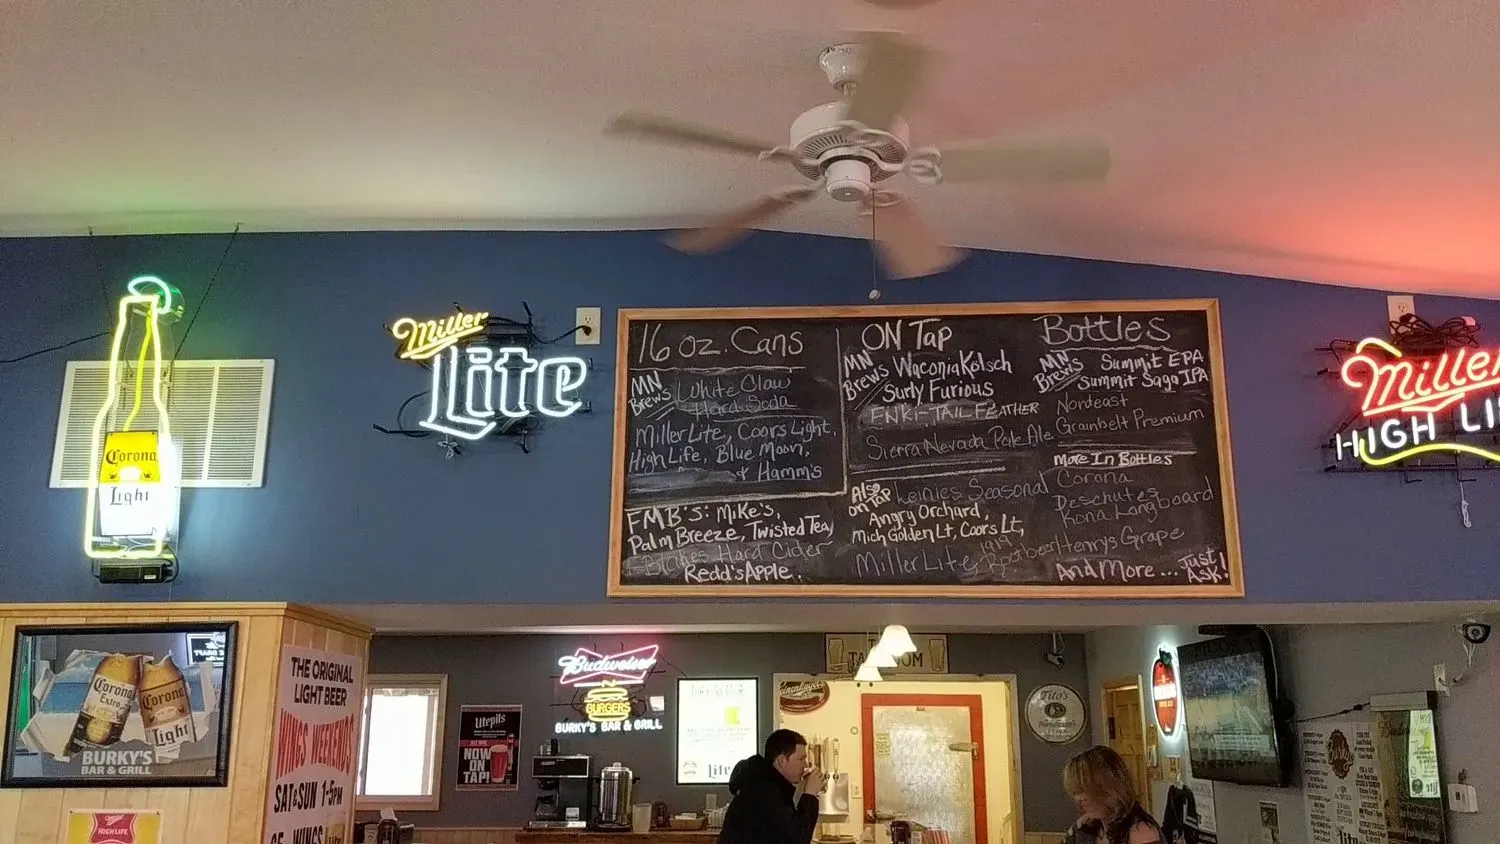 Miller
Lite
Corona
Light
16 oz. Cans
MN
Brews
White Claw
Hard Soda
Miller Lite, Coors Light,
High Life, Blue Moon,
& Hamm's
FMB'S: Mike's,
Palm Breeze, Twisted Tea,
Blakes Hard Cider
Redd's Apple.
ON Tap
MN
Brews
Waconia Kölsch
Surly Furious
ENKI-TAIL FEATHER
Sierra Nevada Pale Ale
Also
on Tap
Leinies Seasonal
Angry Orchard,
Mich Golden Lt, Coors Lt,
Miller Lite, 1919
Rootbeer
Bottles
MN
Brews
Summit EPA
Summit Saga IPA
Nordeast
Grainbelt Premium
More In Bottles
Corona
Deschutes
Kona Longboard
Henrys Grape
And More... Just
Ask!
Miller
HIGH LI
Corona
Extra
Corona
Light
BURKY'S
BAR & GRILL
HIGH LIFE
THE ORIGINAL
LIGHT BEER
WINGS WEEKENDS
SAT & SUN 1-5PM
Budweiser
BURGERS
BURKY'S BAR & GRILL
Utepils
NOW
ON
TAP!
Lite
Tito's
Handmade